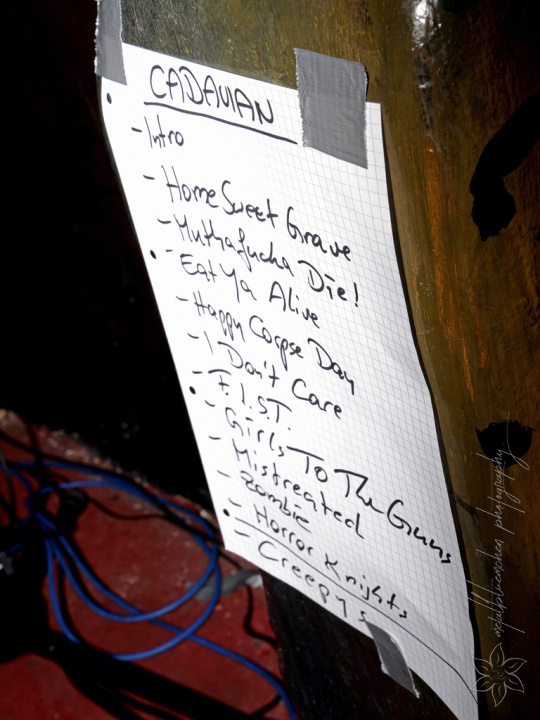 CADAVIAN
- Intro
- Home Sweet Grave
- Muthafucka Die!
- Eat Ya Alive
- Happy Corpse Day
- I Don't Care
- F.I.S.T.
- Girls To The Guns
- Mistreated
- Zombie
- Horror Knights
- Creepy s
metalbluemchen photography